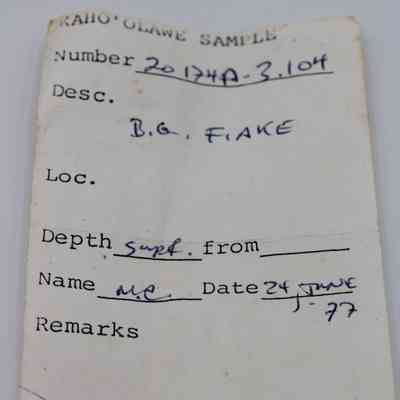 KAHO'OLAWE SAMPLE
Number 20174A-3.104
Desc.
B.G. FLAKE
Loc.
Depth surf. from
Name M.C. Date 24 JUNE
77
Remarks